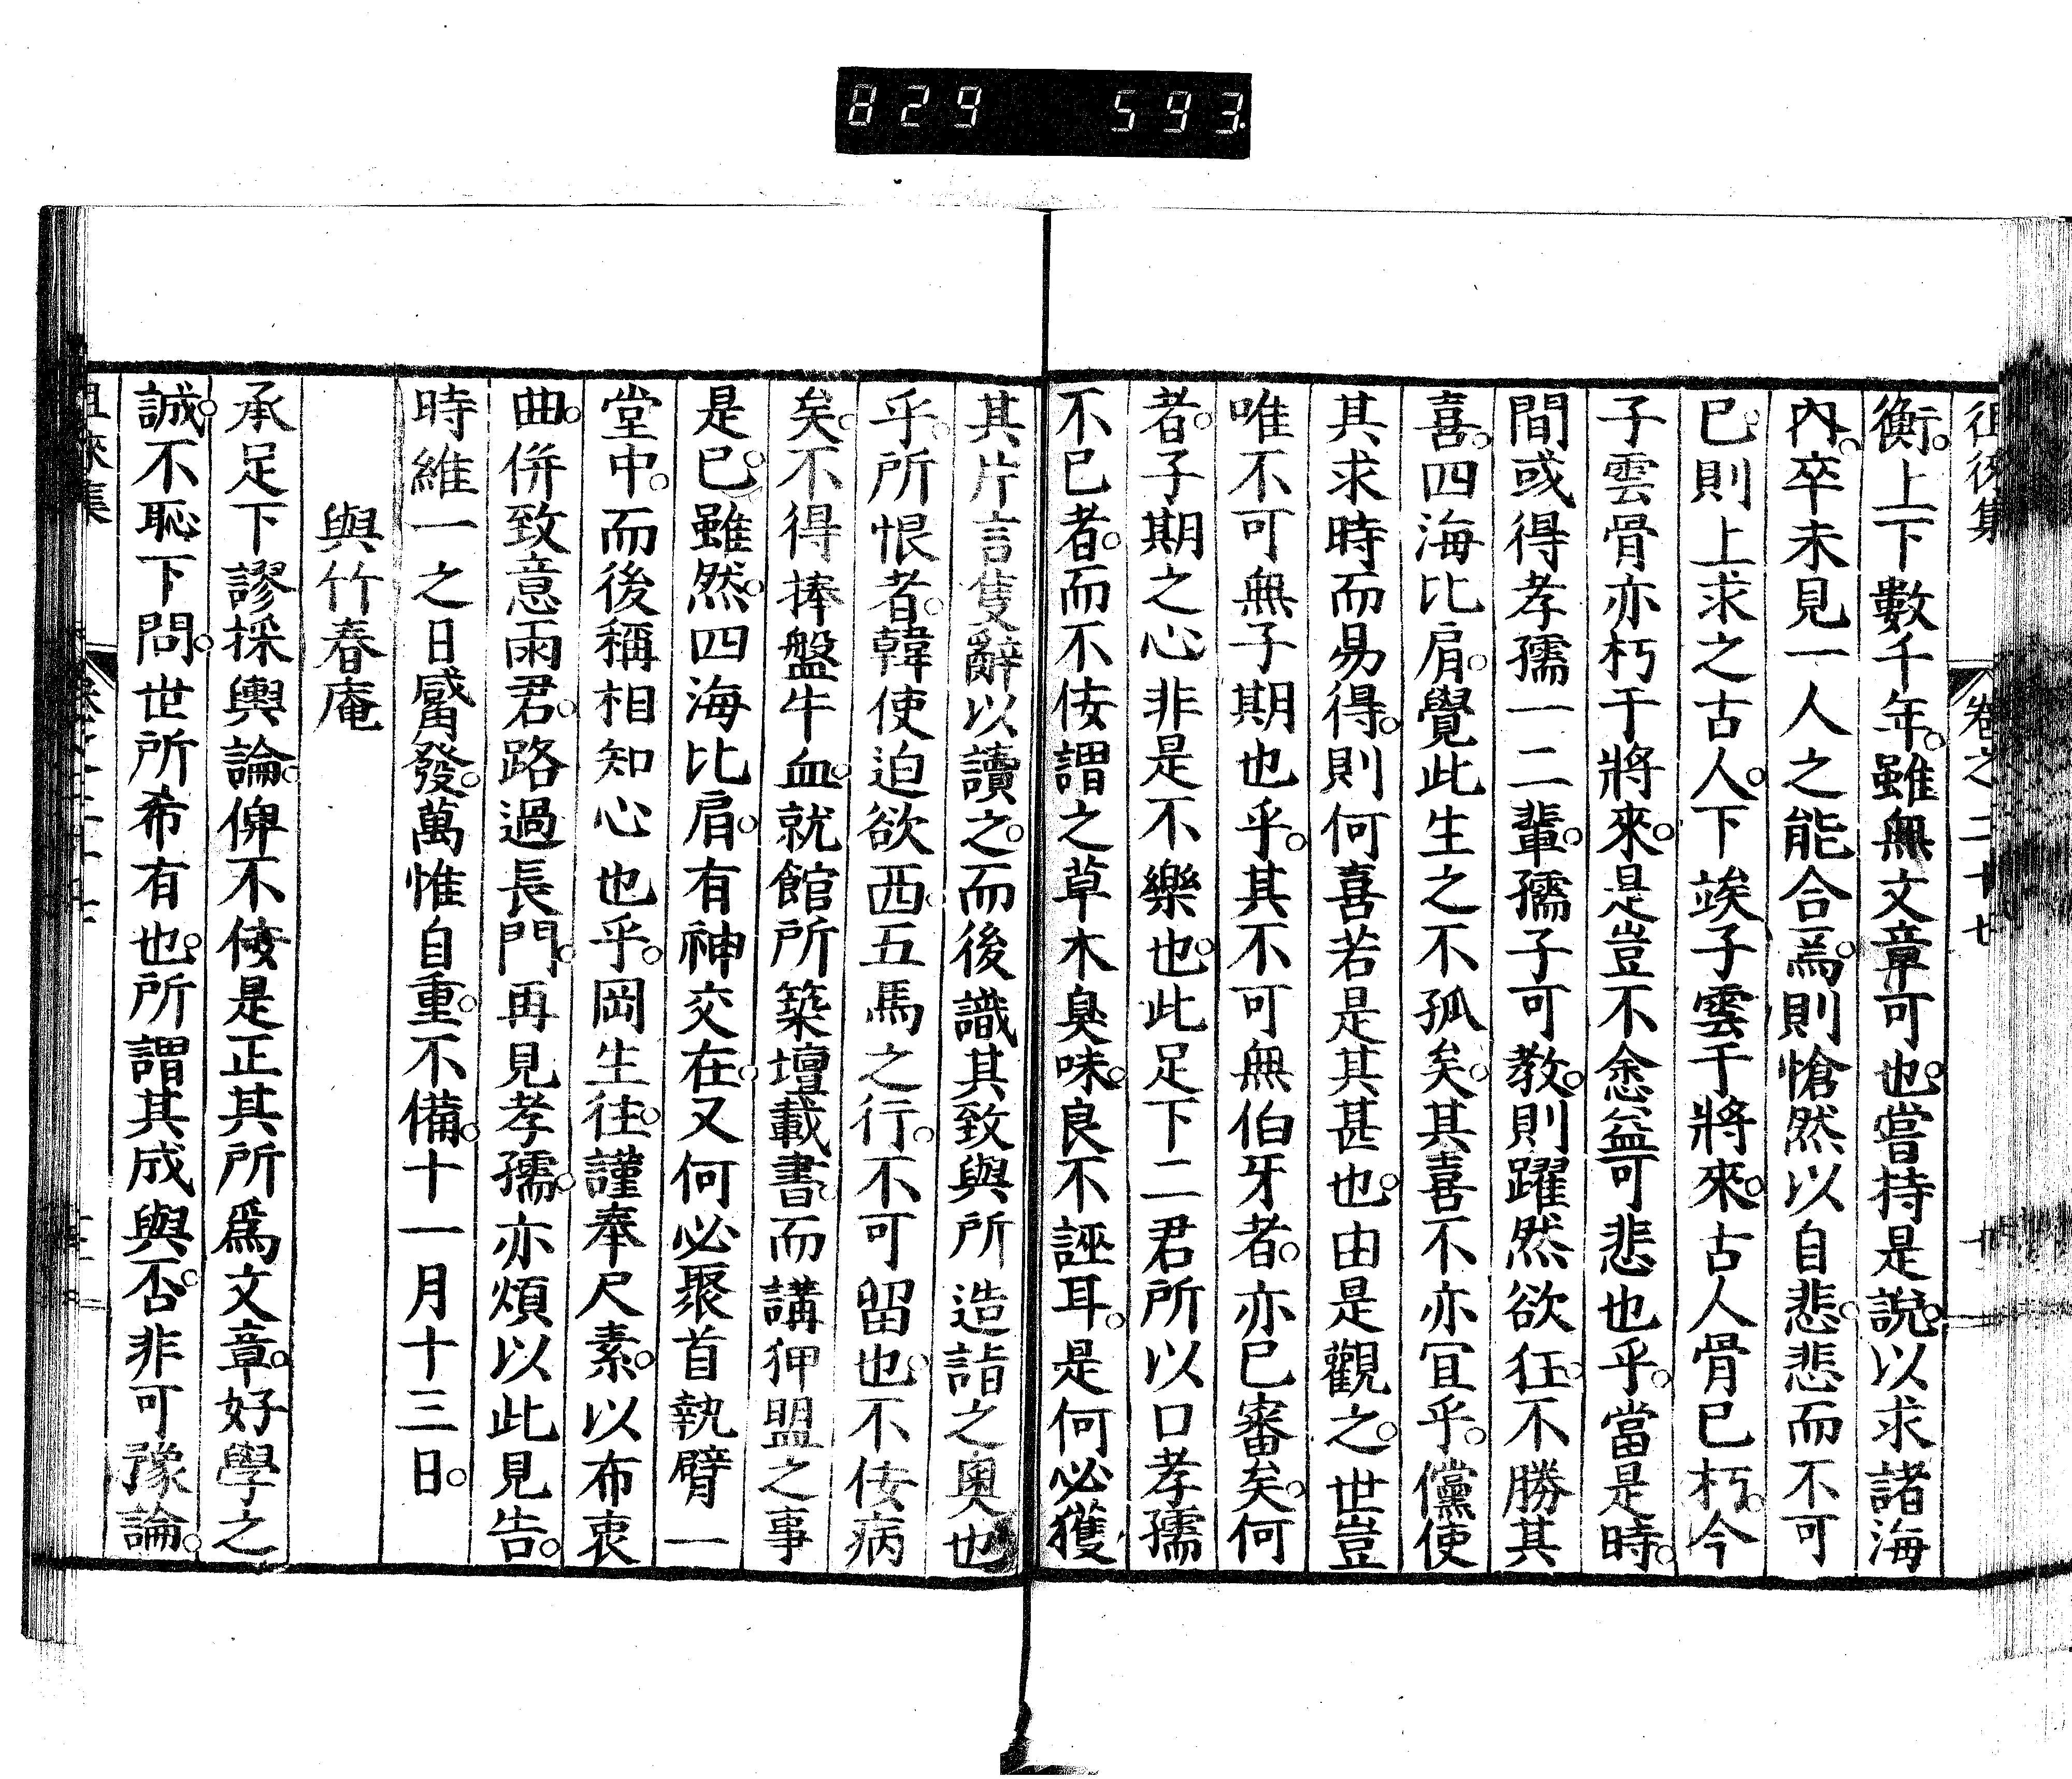 829 593
徂徠集 卷之二十七
衡。上下數千年。雖無文章可也。嘗持是說。以求諸海
內。卒未見一人之能合焉。則愴然以自悲。悲而不可
已。則上求之古人。下竢子雲于將來。古人骨已朽。今
子雲骨亦朽于將來。是豈不悆益可悲也乎。當是時。
間或得孝孺一二輩。孺子可教。則躍然欲狂。不勝其
喜。四海比肩。覺此生之不孤矣。其喜不亦冝乎。儻使
其求時而易得。則何喜若是其甚也。由是觀之。世豈
唯不可無子期也乎。其不可無伯牙者。亦已審矣。何
者。子期之心非是不樂也。此足下二君所以口孝孺
不已者。而不佞謂之草木臭味。良不誣耳。是何必獲
其片言隻辭以讀之。而後識其致與所造詣之奧也
乎。所恨者。韓使迫欲西。五馬之行。不可留也。不佞病
矣。不得捧盤牛血。就館所築壇載書。而講狎盟之事
是已。雖然。四海比肩。有神交在。又何必聚首執臂一
堂中。而後稱相知心也乎。岡生往。謹奉尺素。以布衷
曲。併致意雨君。路過長門。再見孝孺。亦煩以此見告。
時維一之日觱發。萬惟自重。不備。十一月十三日。
與竹春庵
承足下謬採輿論。俾不佞是正其所爲文章。好學之
誠。不恥下問。世所希有也。所謂其成與否。非可豫論。